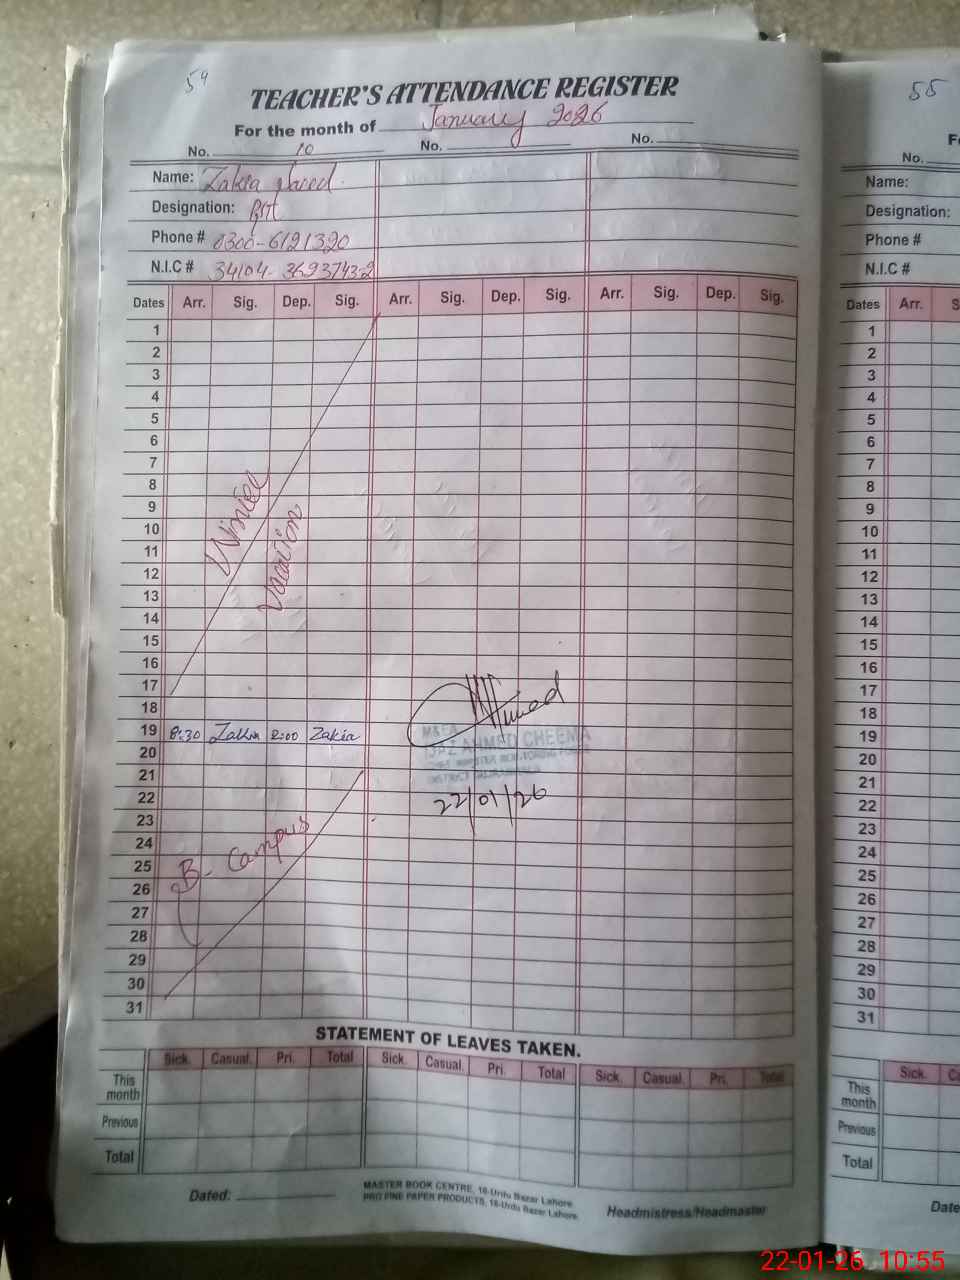 54
TEACHER'S ATTENDANCE REGISTER
For the month of January 2026
No. 10 No. No.
Name: Zakia
Designation: PST
Phone # 0300-6121320
N.I.C # 34104-3693743-2
Dates Arr. Sig. Dep. Sig. Arr. Sig. Dep. Sig. Arr. Sig. Dep. Sig.
1
2
3
4
5
6
7
8
9
10
11
12
13
14
15
16
17
18
Winter
Vacation
19 8:30 Zakia 2:00 Zakia
20
21
22
23
24
25
26
27
28
29
30
31
B- Campus
Ahmed
M&EA
IJAZ AHMED CHEEMA
DISTRICT
22/01/26
STATEMENT OF LEAVES TAKEN.
Sick. Casual. Pri. Total Sick. Casual. Pri. Total Sick. Casual. Pri. Total
This month
Previous
Total
Dated:
MASTER BOOK CENTRE, 16-Urdu Bazar Lahore.
PRO FINE PAPER PRODUCTS, 16-Urdu Bazar Lahore.
Headmistress/Headmaster
55
No.
Name:
Designation:
Phone #
N.I.C #
Dates Arr.
1
2
3
4
5
6
7
8
9
10
11
12
13
14
15
16
17
18
19
20
21
22
23
24
25
26
27
28
29
30
31
Sick.
This month
Previous
Total
22-01-26 10:55